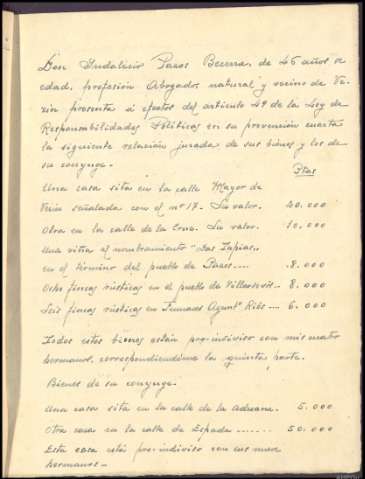 Don Indalecio Pazos Becerra, de 45 años de
edad, profesión Abogado, natural y vecino de Ve-
rín presenta a efectos del artículo 49 de la Ley de
Responsabilidades Políticas en su prevención cuarta
la siguiente relación jurada de sus bienes y los de
su conyuge.-
Ptas
Una casa sita en la calle Mayor de
Verin señalada con el nº 17. Su valor. 40.000
Otra en la calle de la Cruz. Su valor.. 10.000
Una viña al nombramiento "Las Tapias"
en el término del pueblo de Pazos.... 8.000
Ocho fincas rústicas en el pueblo de 8.000
Seis fincas rústicas en Fumaces Ayuntº Riós... 6.000
Todos estos bienes están pro-indiviso con mis cuatro
hermanos, correspondiendome la quinta parte.
Bienes de su conyuge.
Una casa sita en la calle de la Aduana. 5.000
Otra casa en la calle de Espada ........ 50.000
Esta casa está pro-indiviso con sus nueve
hermanos.-